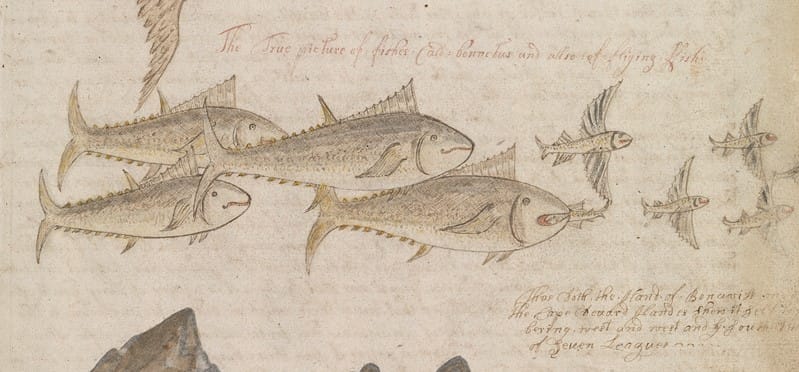 The True picture of fishes Cald bonnetus and also of flijing Fish:
Thus doth the Iland of Bonavist
the Cape Devard Ilandes shew it sel
bering west and west and by South
of Seven Leagues